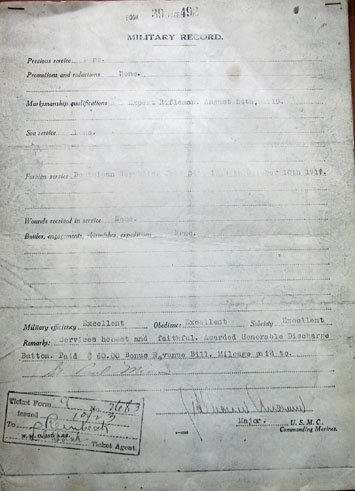 BOOK 39 PAGE 492
MILITARY RECORD.
Previous service
Promotions and reductions None.
Marksmanship qualifications Expert Rifleman. August
Sea service
Foreign service Dominican Republic, October 10th 1919.
Wounds received in service None.
Battles, engagements, skirmishes, expeditions None.
Military efficiency Excellent Obedience Excellent Sobriety Excellent
Remarks: Services honest and faithful. Awarded Honorable Discharge
Button. Paid $ 60.00 Bonus Revenue Bill. Mileage paid to.
St. Paul
Ticket Form No. 2683
Issued
To
Ticket Agent.
Major. U. S. M. C.
Commanding Marines.